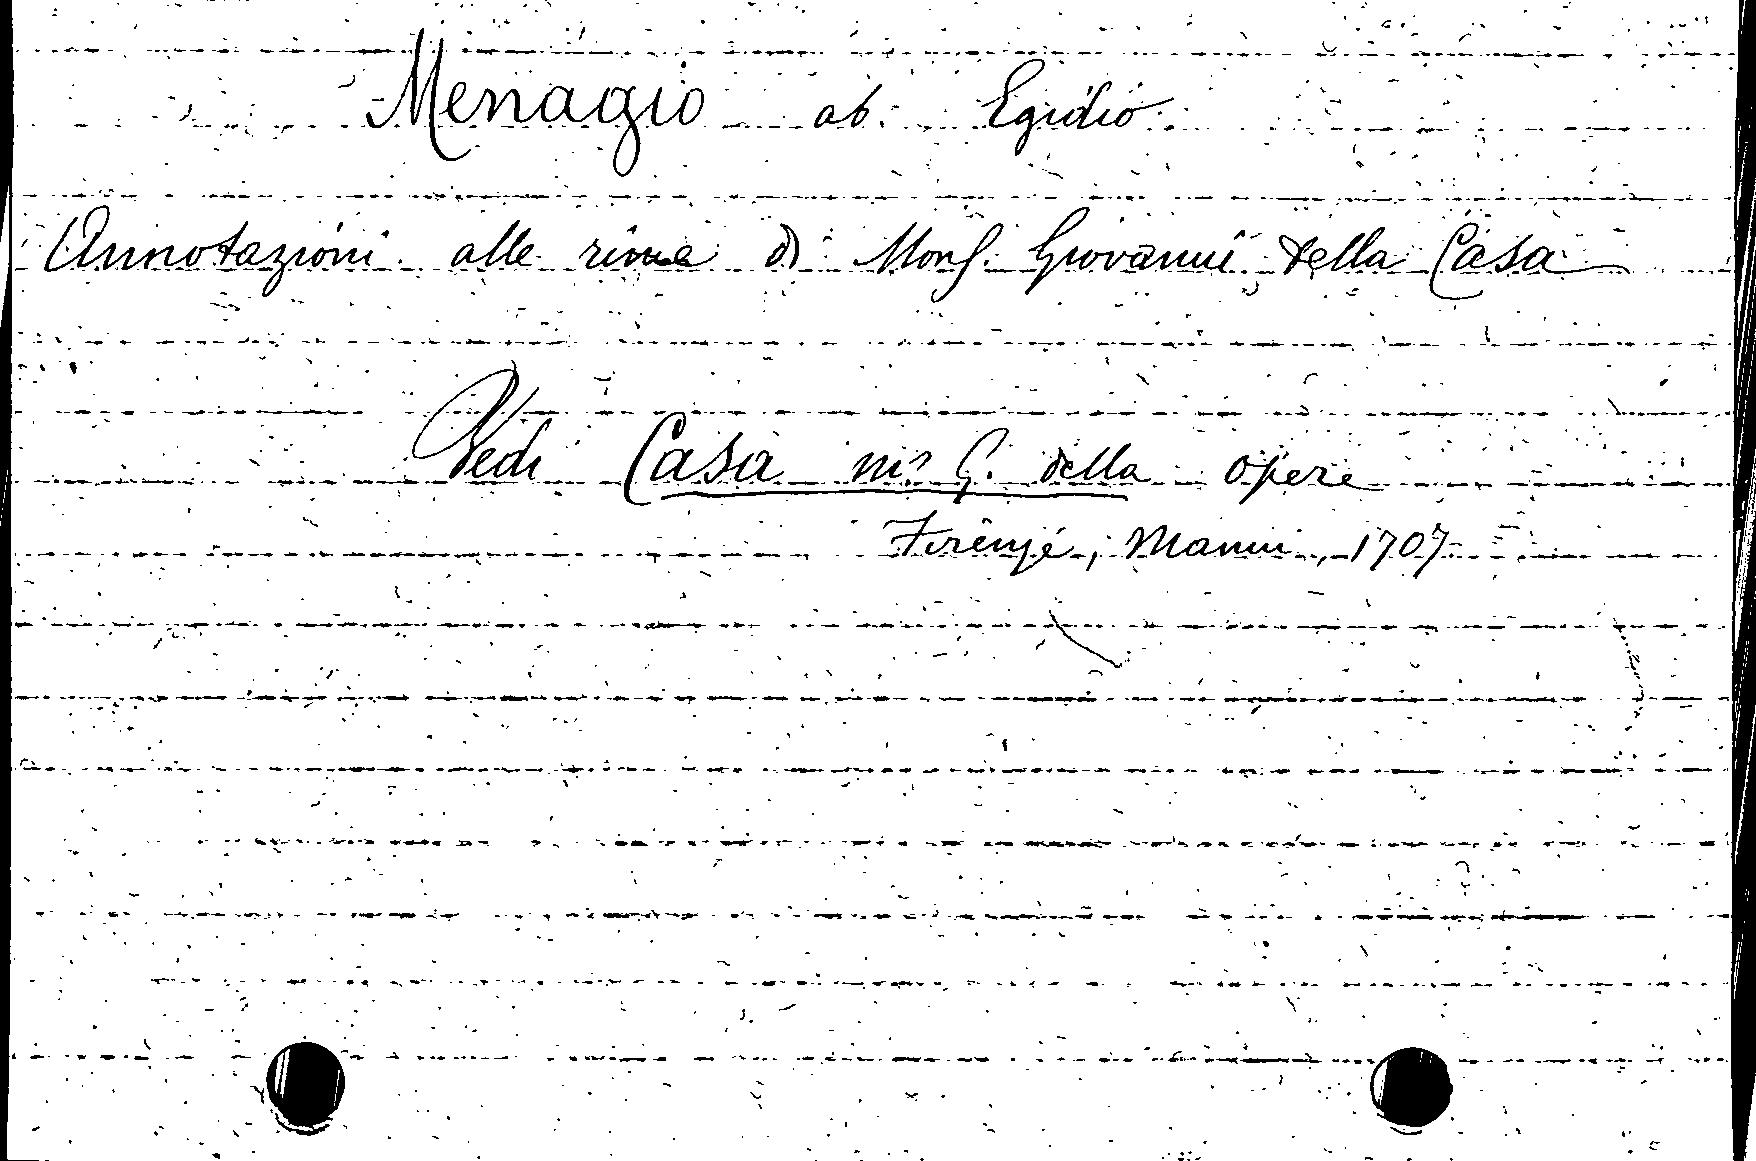 Menagio ab. Egidio
Annotazioni alle rime di Mons. Giovanni della Casa
Vedi Casa m.r G. della opere
Firenze, Manni, 1707